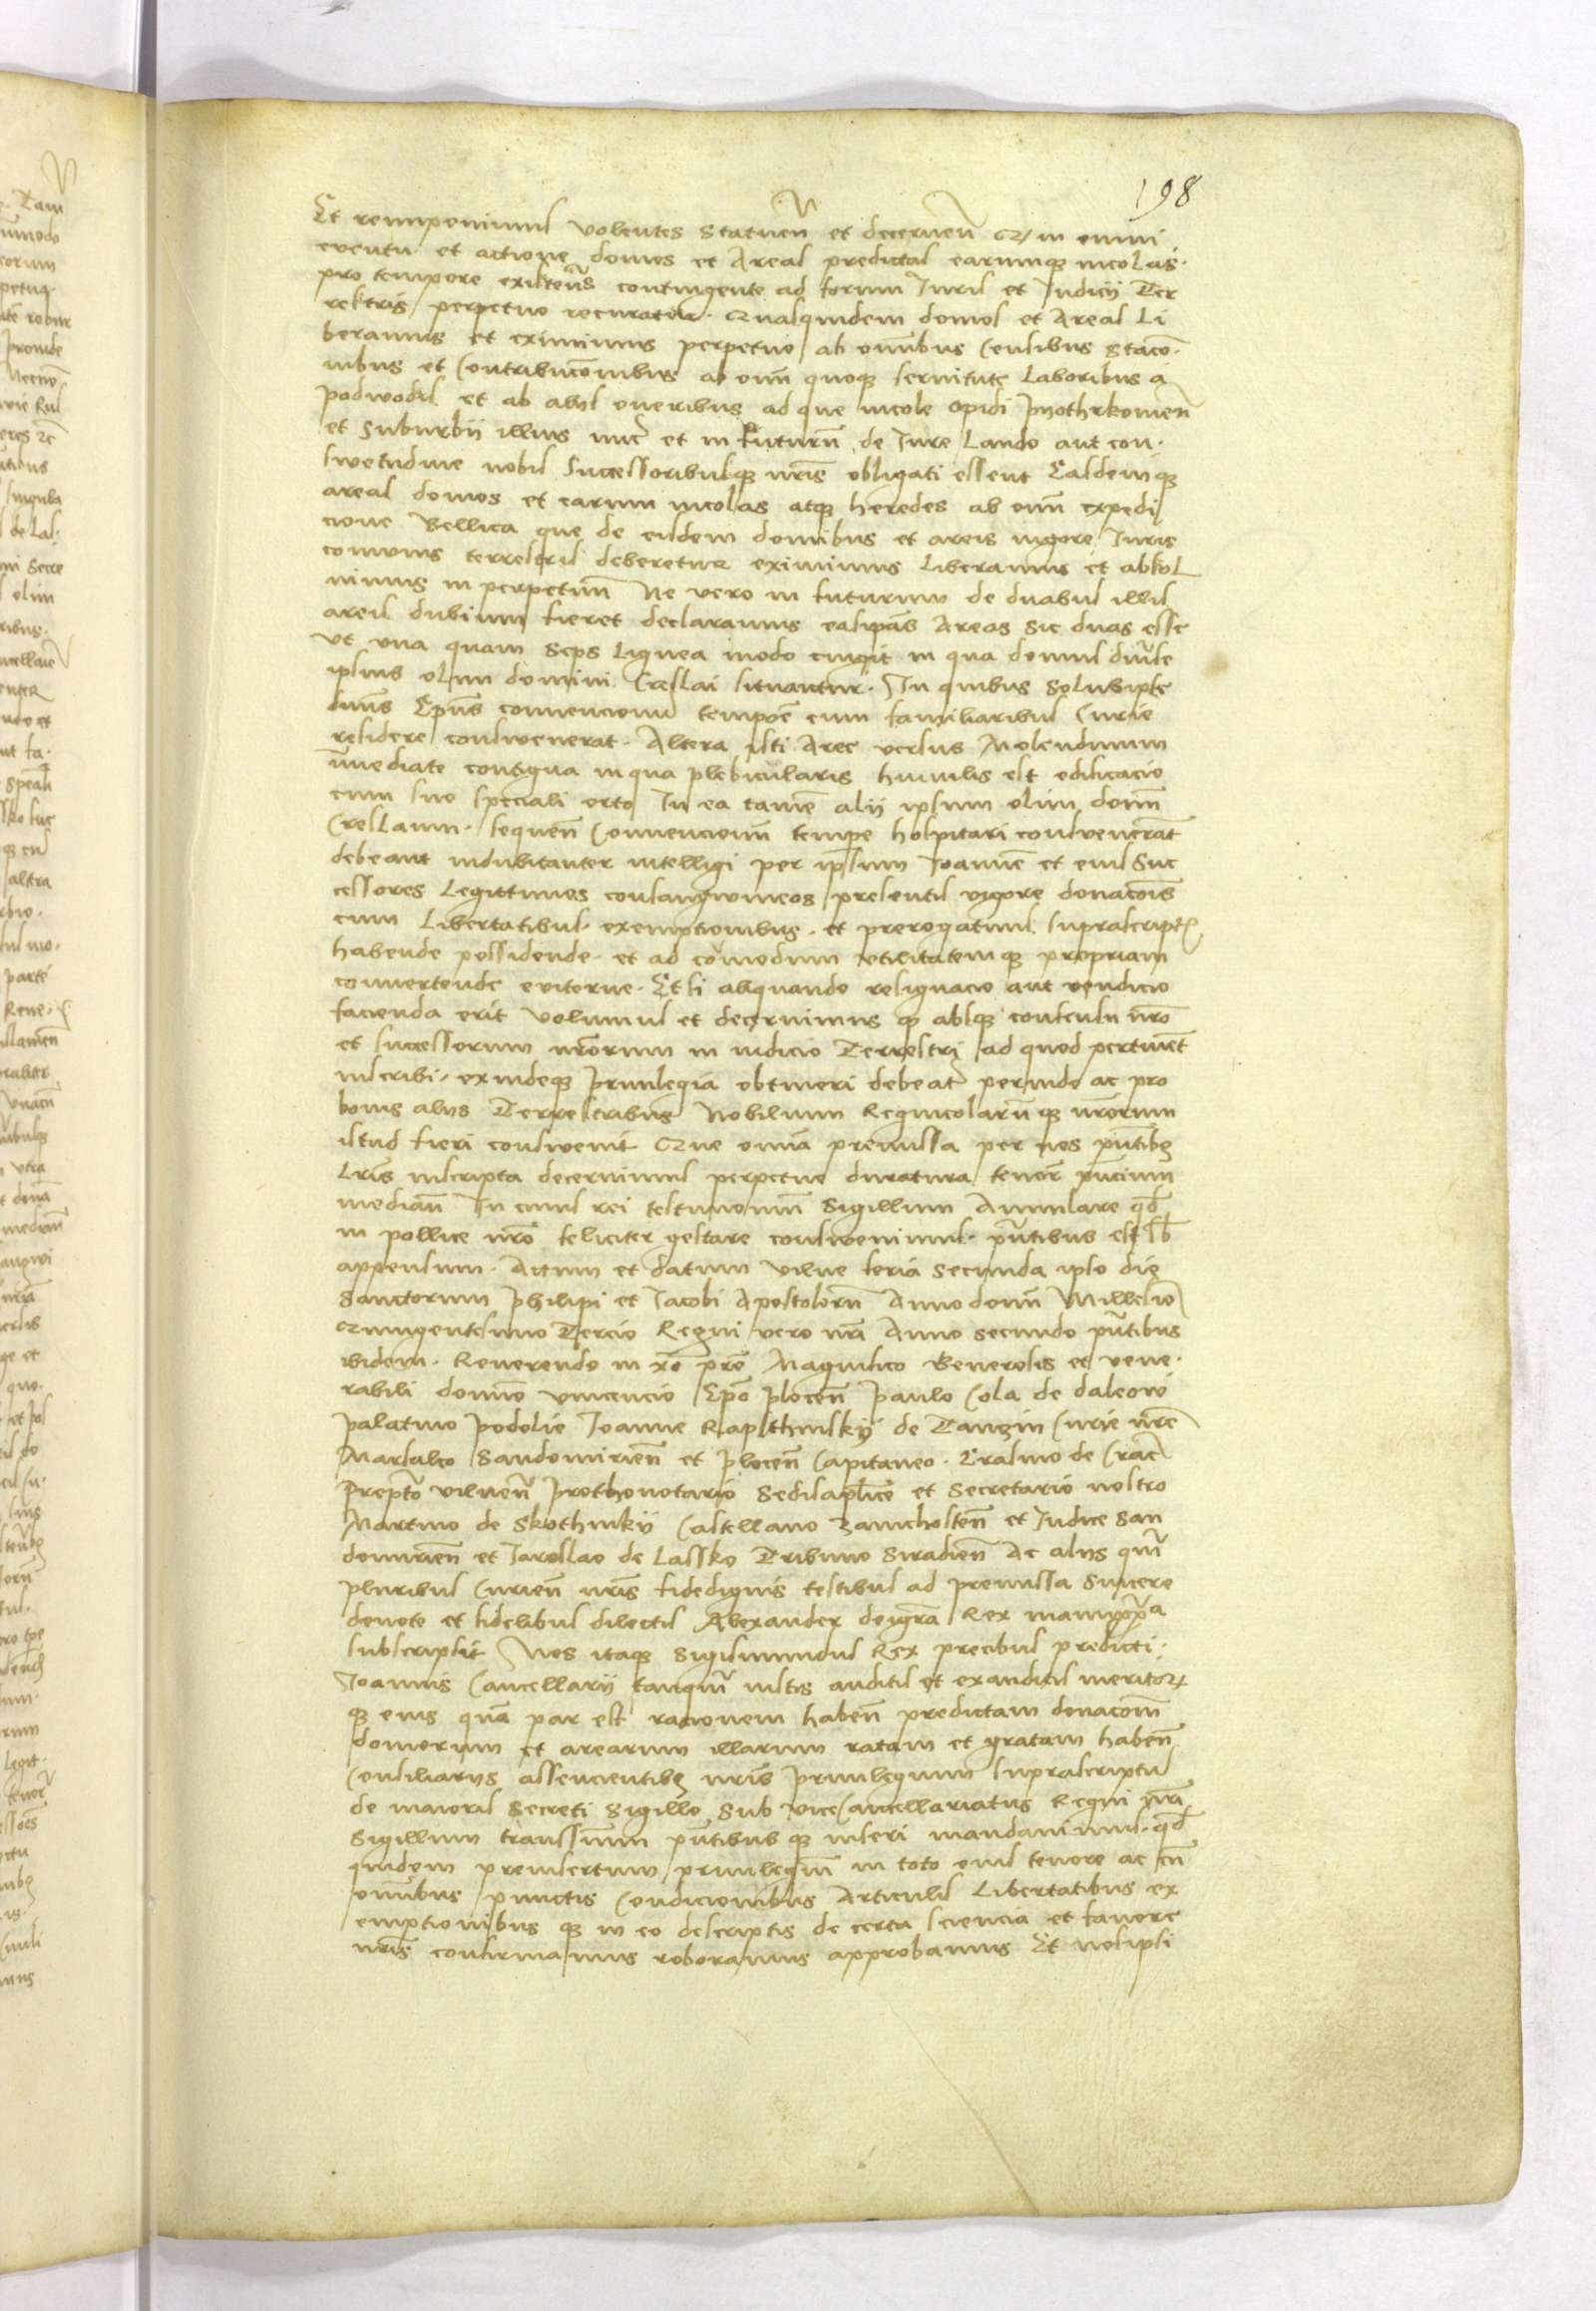 198
Et reimponimus volentes statuen̄ et decernen̄ Q in omni
eventu et actione domos et Areas predictas earumq incolas.
pro tempore existen̄s contingente ad forum Iuris et Iudicij Ter
restris perpetuo recuratur. Quasquidem domos et Areas Li
beramus et eximimus perpetuo ab omībus Censibus staco-
nibus et Contribucōnibus ab omī quoq servitute Laboribus a
podwodis et ab alijs oneribus ad que incole opidi Pyothrkovien̄
et suburbij illius nūc et in futurū de Iure Lando aut con-
swetudine nobis Successoribusq nr̄is obligati essent Easdemq
areas domos et earum incolas atq heredes ab omī expedi
cione Bellica que de eisdem domibus et areis vigore Iuris
comunis terrestris deberetur eximimus Liberamus et absol
vimus in perpetuū Ne vero in futurum de duabus illis
areis dubium fieret declaramus easipās Areas sic duas esse
ut una quam Seps Lignea modo cingit in qua domus
ipsius olim domini Creslai situantur. In quibus
dūus Ep̄us convencionū tempore cum familiaribus Curie
residere conswenerat. Altera isti Aree versus Molendinum
īmediate contigua in qua plebicularis humilis est edificacio
cum suo speciali orto In ea tamē alij ipsum olim domī
Creslaum. sequen̄ Convencionū tempe hospitari conswenerāt
debeant indubitanter intelligi per ipsum Ioannē et eius Suc
cessores Legittimos consangwineos presentis vigore donacōis
cum Libertatibus. exemptionibus. et prerogativis suprascriptis
habende possidende. et ad comodum utilitatemq propriam
convertende eviterne. Et si aliquando resignacio aut vendicio
facienda erit volumus et decernimus q absq consensu nr̄o
et successorum nr̄orum in iudicio Terrestri ad quod pertinet
inscribi. exindeq privilegia obtineri debeat perinde ac pro
bonis alijs Terrestribus Nobilium Regnicolarūq nr̄orum
istud fieri conswevit Que omīa premissa per nos pn̄tibus
Lr̄is inscripta decernimus perpetue duratura tenor̄ pn̄cium
median̄ In cuius rei testimoniū Sigillum Annulare qd̄
in pollice nr̄o feliciter gestare conswevimus. pn̄tibus est sb̄
appensum. Actum et datum Vilne feria secunda ipso die
Sanctorum Philipi et Iacobi Apostolorū Anno domī Millesio
Quingentesimo Tercio Regni vero nr̄i Anno secundo pn̄tibus
ibidem. Reverendo in xr̄o pr̄e Magnifico Generosis et vene-
rabili domino vincencio Ep̄o plocen̄ Paulo Cola de daleow
palatino podolie Ioanne Rapsthinskij de Tanzin Curie nr̄e
Marsalco Sandomirien̄ et plocen̄ Capitaneo. Erasmo de Crac̄
Prepto vilnen̄ Prothonotario Sedisaplice et Secretario nostro
Martino de Skothnikij Castellano Zawicholsten̄ et Iudice San
domirien̄ et Iaroslao de Lassko Tribuno Siradien̄ Ac alijs quā
pluribus Curien̄ nr̄is fidedignis testibus ad premissa Sincere
devote et fidelibus dilectis Alexander deigrā Rex manuppa
subscripsit Nos itaq Sigismundus Rex precibus predicti
Ioannis Cancellarij tanquā iustis auditis et exauditis meritor
q eius quā par est racionem haben̄ predictam donacōm
domorum et arearum illarum ratam et gratam haben̄
Consiliarijs assencientibus nr̄is Privilegium suprascriptū
de maioris Secreti Sigillo sub viceCancellariatus Regni nr̄i
Sigillum transsumi pn̄tibusq inseri mandavimus. qd̄
quidem preinsertum privilegiū in toto eius tenore ac cū
omībus punctis Condicionibus Articulis Libertatibus ex
emptionibusq in eo descriptis de certa sciencia et favore
nr̄is confirmamus roboramus approbamus Et nosipsi